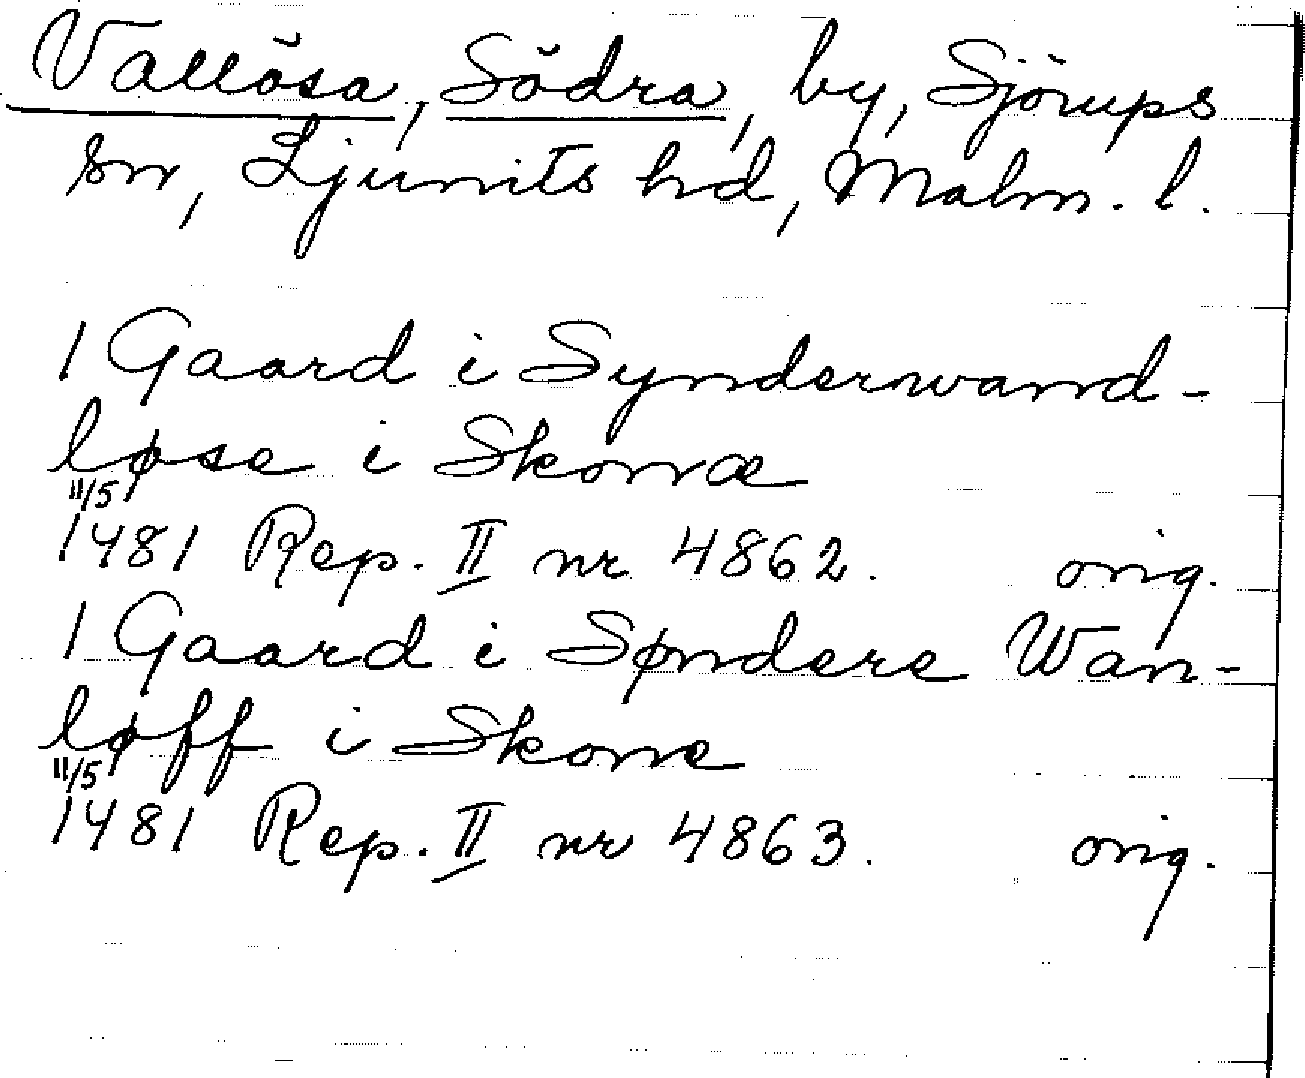 Vallösa, Södra, by, Sjörups
sn, Ljunits hd, Malm. l.
1 Gaard i Synderwand-
løse i Skonæ
11/5
1481 Rep. II nr 4862. orig.
1 Gaard i Søndere Wan-
løff i Skone
11/5
1481 Rep. II nr 4863. orig.